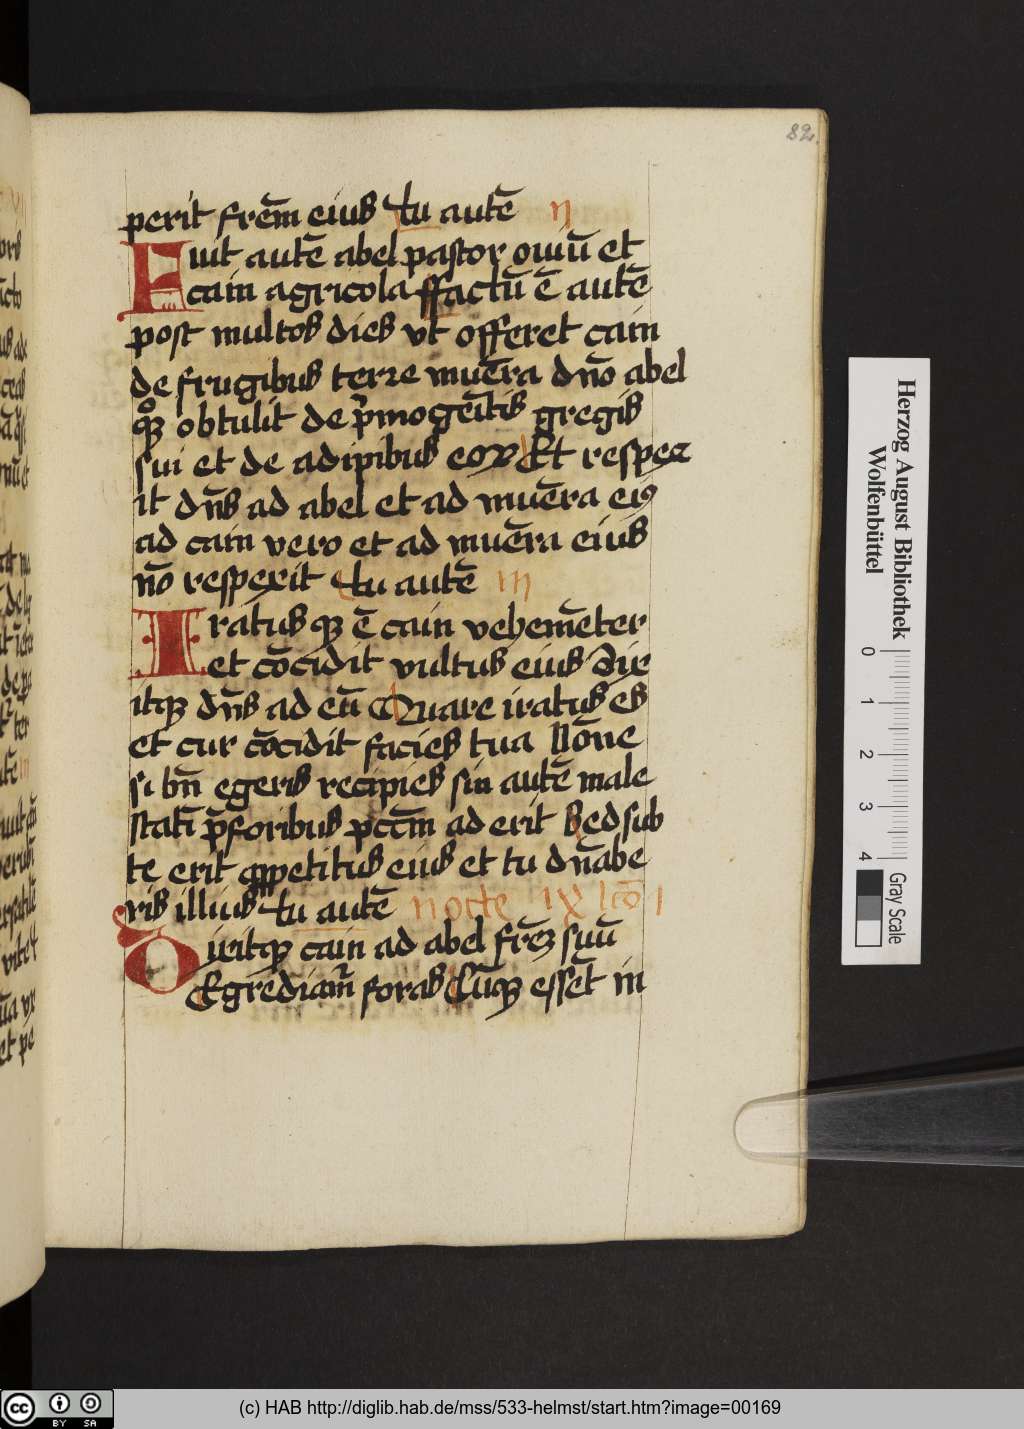 82.
perit frēm eius tu autē II
Fuit autē abel pastor ouiū et
cain agricola ffactū ē autē
post multos dies vt offeret cain
de frugibus terre muēra dn̄o abel
qͦqȝ obtulit de p̄mogēitis gregis
sui et de adipibus eoꝝ Et respex
it dn̄s ad abel et ad muēra eiꝰ
ad cain vero et ad muēra eius
nō respexit tu autē III
Iratus qȝ ē cain vehemēter
et cōcidit vultus eius Dix
itqȝ dn̄s ad eū Quare iratus es
et cur cōcidit facies tua Nōne
si bn̄ egeris recipies sin autē male
stati p̄foribus pctm̄ ad erit Sed sub
te erit appetitus eius et tu dn̄abe
ris illius tu autē nocte IX lcō I
Dixitqȝ cain ad abel frēȝ suū
Egrediam̄ foras Cūqȝ essēt in
Herzog August Bibliothek
Wolfenbüttel
0 1 2 3 4
Gray Scale
cc BY SA
(c) HAB http://diglib.hab.de/mss/533-helmst/start.htm?image=00169